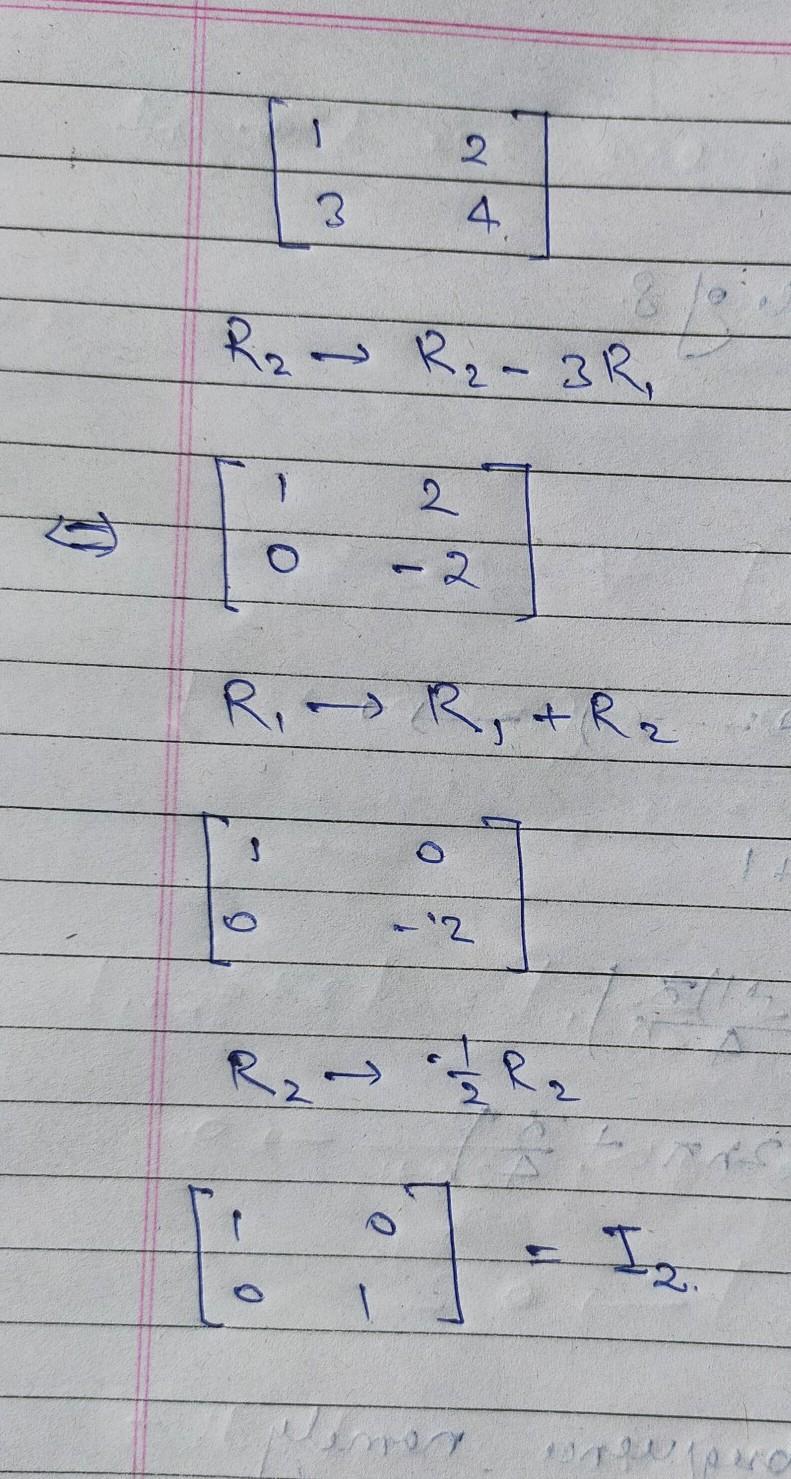 [ 1 2
3 4 ]
R₂ → R₂ - 3R₁
⇔ [ 1 2
0 -2 ]
R₁ → R₁ + R₂
[ 1 0
0 -2 ]
R₂ → -1/2 R₂
[ 1 0
0 1 ] = I₂.